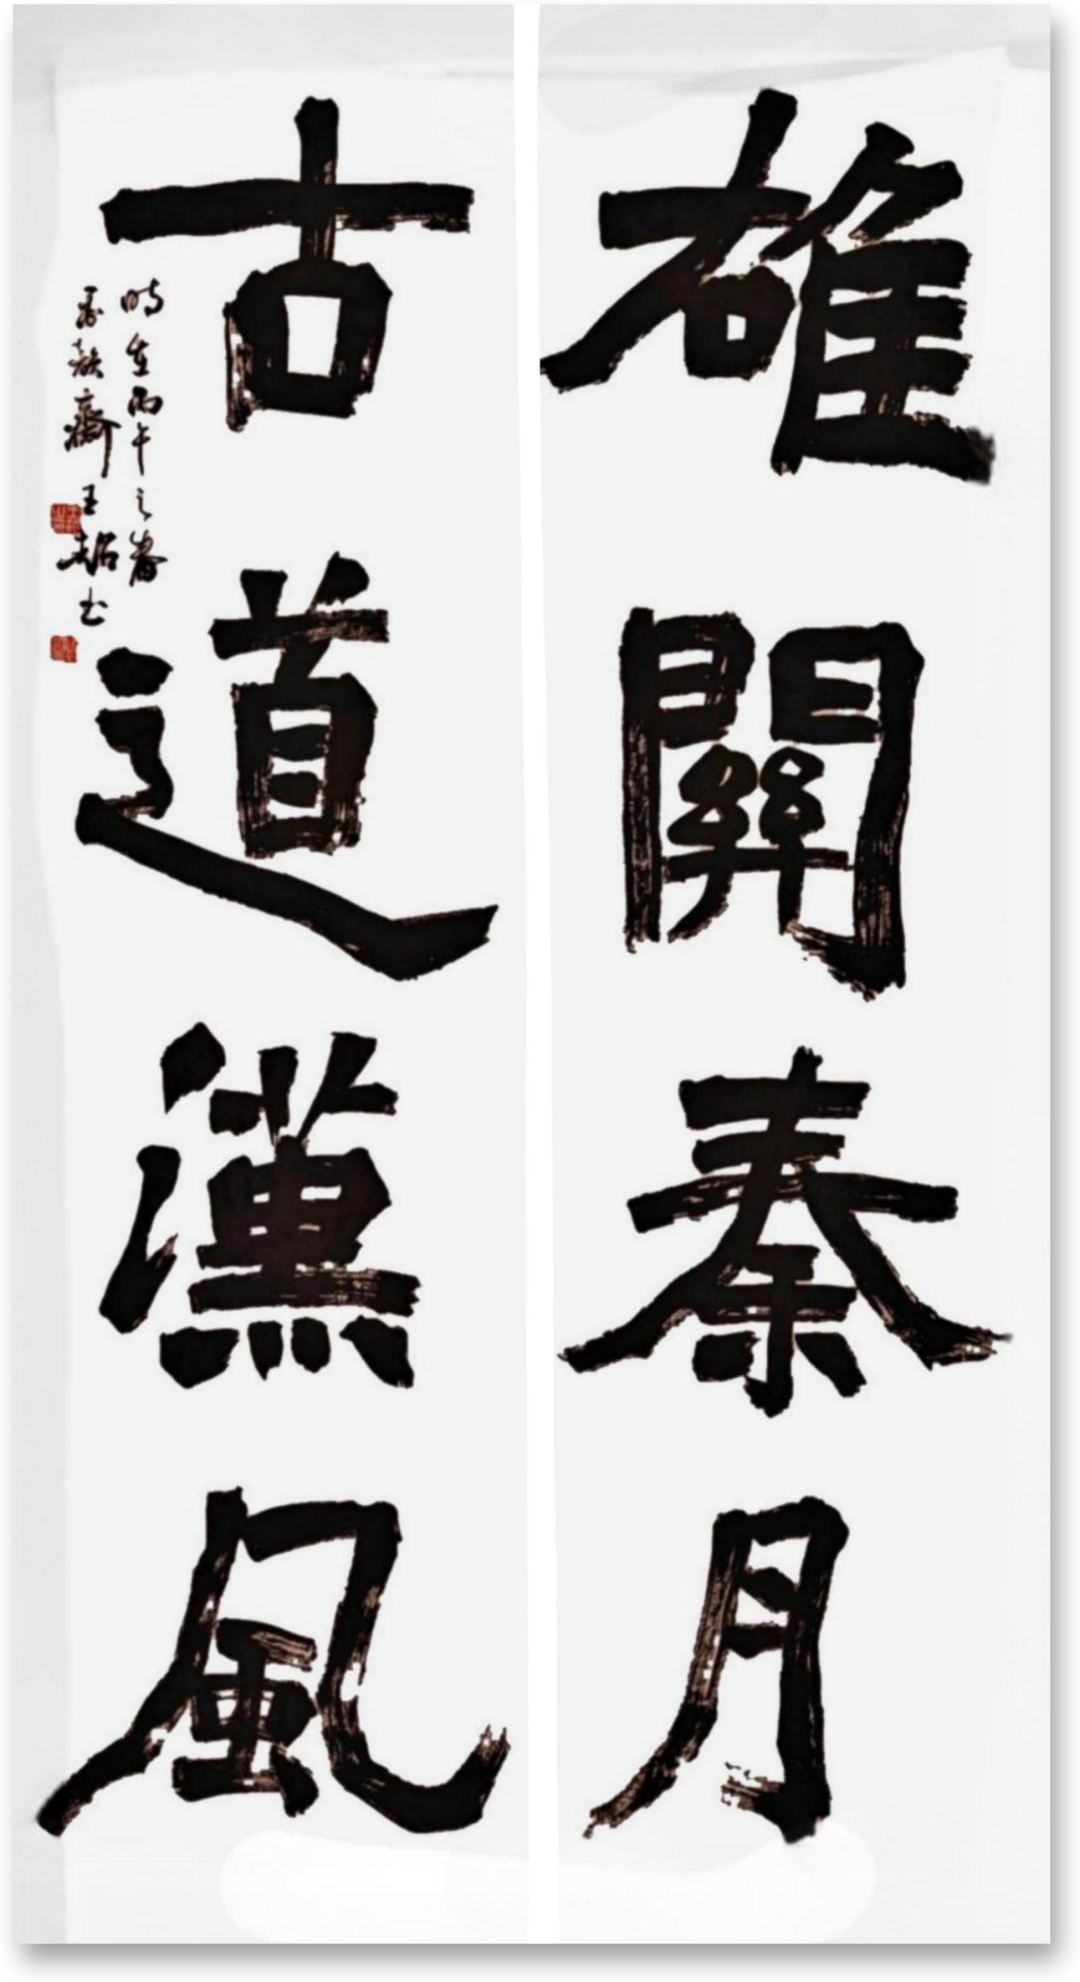 雄關秦月
古道漢風
時在丙午之春
墨韻齋王韜书